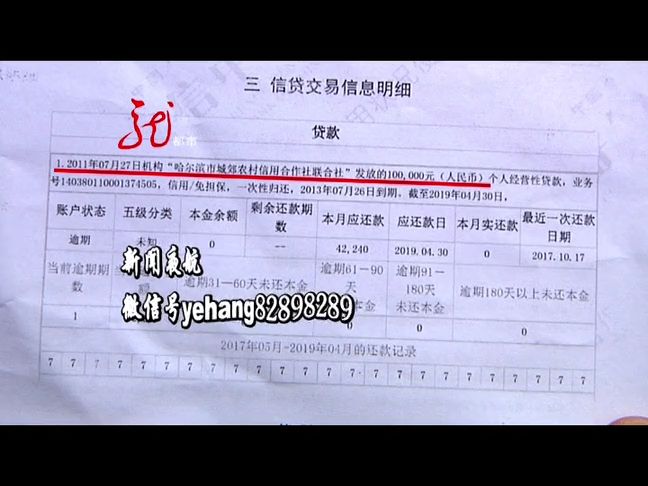 三 信贷交易信息明细
龙
都市
贷款
1.2011年07月27日机构“哈尔滨市城郊农村信用合作社联合社”发放的100,000元（人民币）个人经营性贷款，业务
号140380110001374505，信用/免担保，一次性归还，2013年07月26日到期。截至2019年04月30日，
账户状态 五级分类 本金余额 剩余还款期数 本月应还款 应还款日 本月实还款 最近一次还款日期
逾期 未知 0 -- 42,240 2019.04.30 0 2017.10.17
当前逾期期数 额 逾期31—60天未还本金 逾期61-90天 还本金 逾期91-180天未还本金 逾期180天以上未还本金
1 0 0 0
新闻夜航
微信号yehang82898289
2017年05月-2019年04月的还款记录
7 7 7 7 7 7 7 7 7 7 7 7 7 7 7 7 7 7 7 7 7 7 7 7